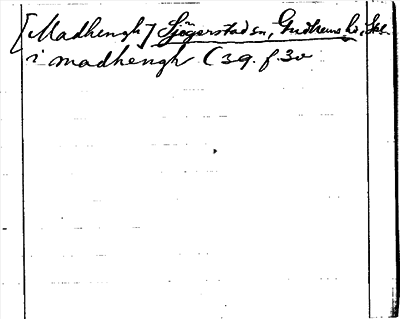 [Madhengh] Sjögerstad sn, Gudhems hd, Skg.
i madhengh C 39. f. 3v